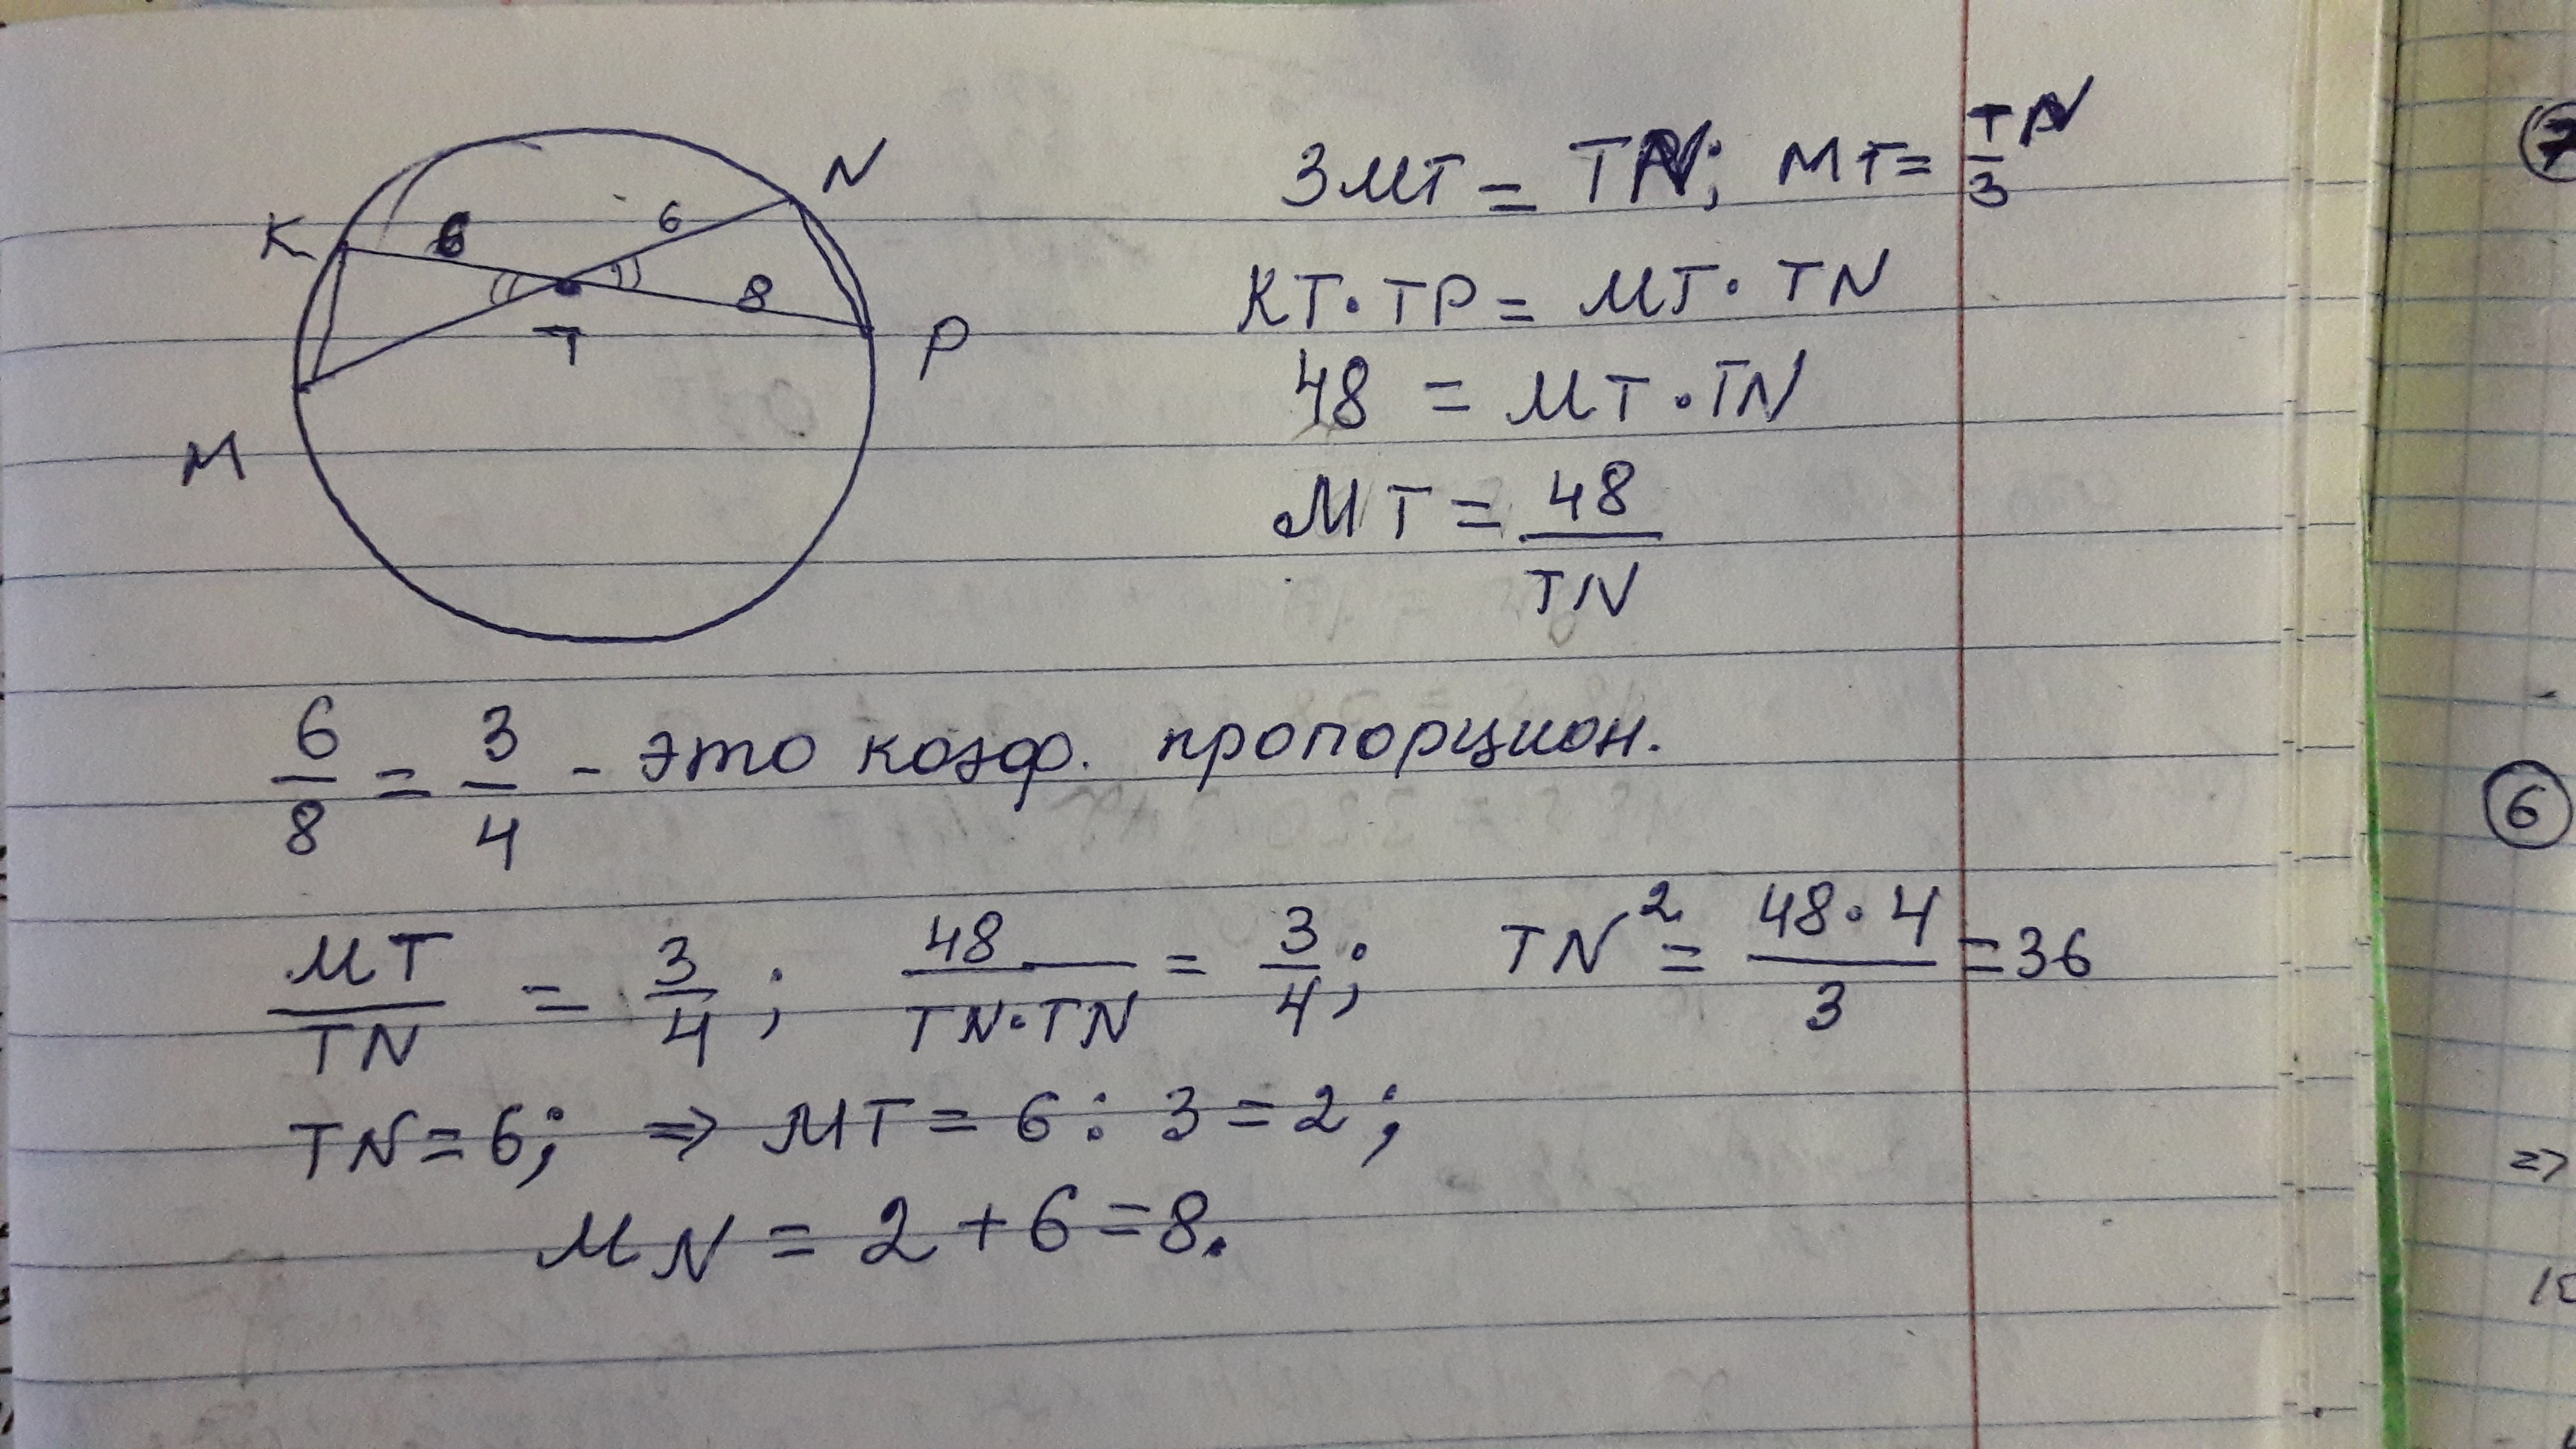 N
K 6 6
8
T
P
M
3MT = TN; MT = TN/3
KT · TP = MT · TN
48 = MT · TN
MT = 48/TN
6/8 = 3/4 - это коэф. пропорцион.
MT/TN = 3/4; 48/TN·TN = 3/4; TN² = 48·4/3 = 36
TN = 6; => MT = 6 : 3 = 2;
MN = 2 + 6 = 8.
7
6
=>